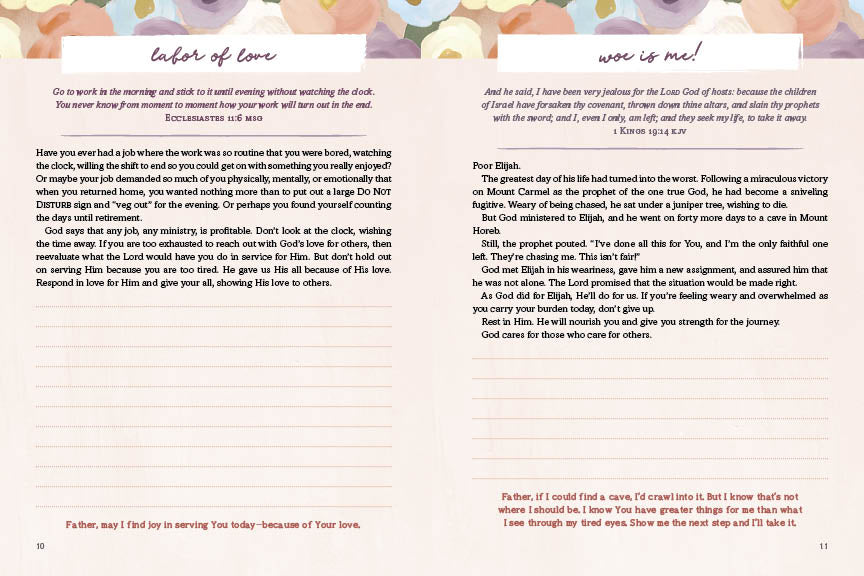 labor of love
Go to work in the morning and stick to it until evening without watching the clock.
You never know from moment to moment how your work will turn out in the end.
Ecclesiastes 11:6 MSG
Have you ever had a job where the work was so routine that you were bored, watching
the clock, willing the shift to end so you could get on with something you really enjoyed?
Or maybe your job demanded so much of you physically, mentally, or emotionally that
when you returned home, you wanted nothing more than to put out a large Do Not
Disturb sign and "veg out" for the evening. Or perhaps you found yourself counting
the days until retirement.
God says that any job, any ministry, is profitable. Don't look at the clock, wishing
the time away. If you are too exhausted to reach out with God's love for others, then
reevaluate what the Lord would have you do in service for Him. But don't hold out
on serving Him because you are too tired. He gave us His all because of His love.
Respond in love for Him and give your all, showing His love to others.
Father, may I find joy in serving You today—because of Your love.
10
woe is me!
And he said, I have been very jealous for the Lord God of hosts: because the children
of Israel have forsaken thy covenant, thrown down thine altars, and slain thy prophets
with the sword; and I, even I only, am left; and they seek my life, to take it away.
1 Kings 19:14 KJV
Poor Elijah.
The greatest day of his life had turned into the worst. Following a miraculous victory
on Mount Carmel as the prophet of the one true God, he had become a sniveling
fugitive. Weary of being chased, he sat under a juniper tree, wishing to die.
But God ministered to Elijah, and he went on forty more days to a cave in Mount
Horeb.
Still, the prophet pouted. "I've done all this for You, and I'm the only faithful one
left. They're chasing me. This isn't fair!"
God met Elijah in his weariness, gave him a new assignment, and assured him that
he was not alone. The Lord promised that the situation would be made right.
As God did for Elijah, He'll do for us. If you're feeling weary and overwhelmed as
you carry your burden today, don't give up.
Rest in Him. He will nourish you and give you strength for the journey.
God cares for those who care for others.
Father, if I could find a cave, I'd crawl into it. But I know that's not
where I should be. I know You have greater things for me than what
I see through my tired eyes. Show me the next step and I'll take it.
11